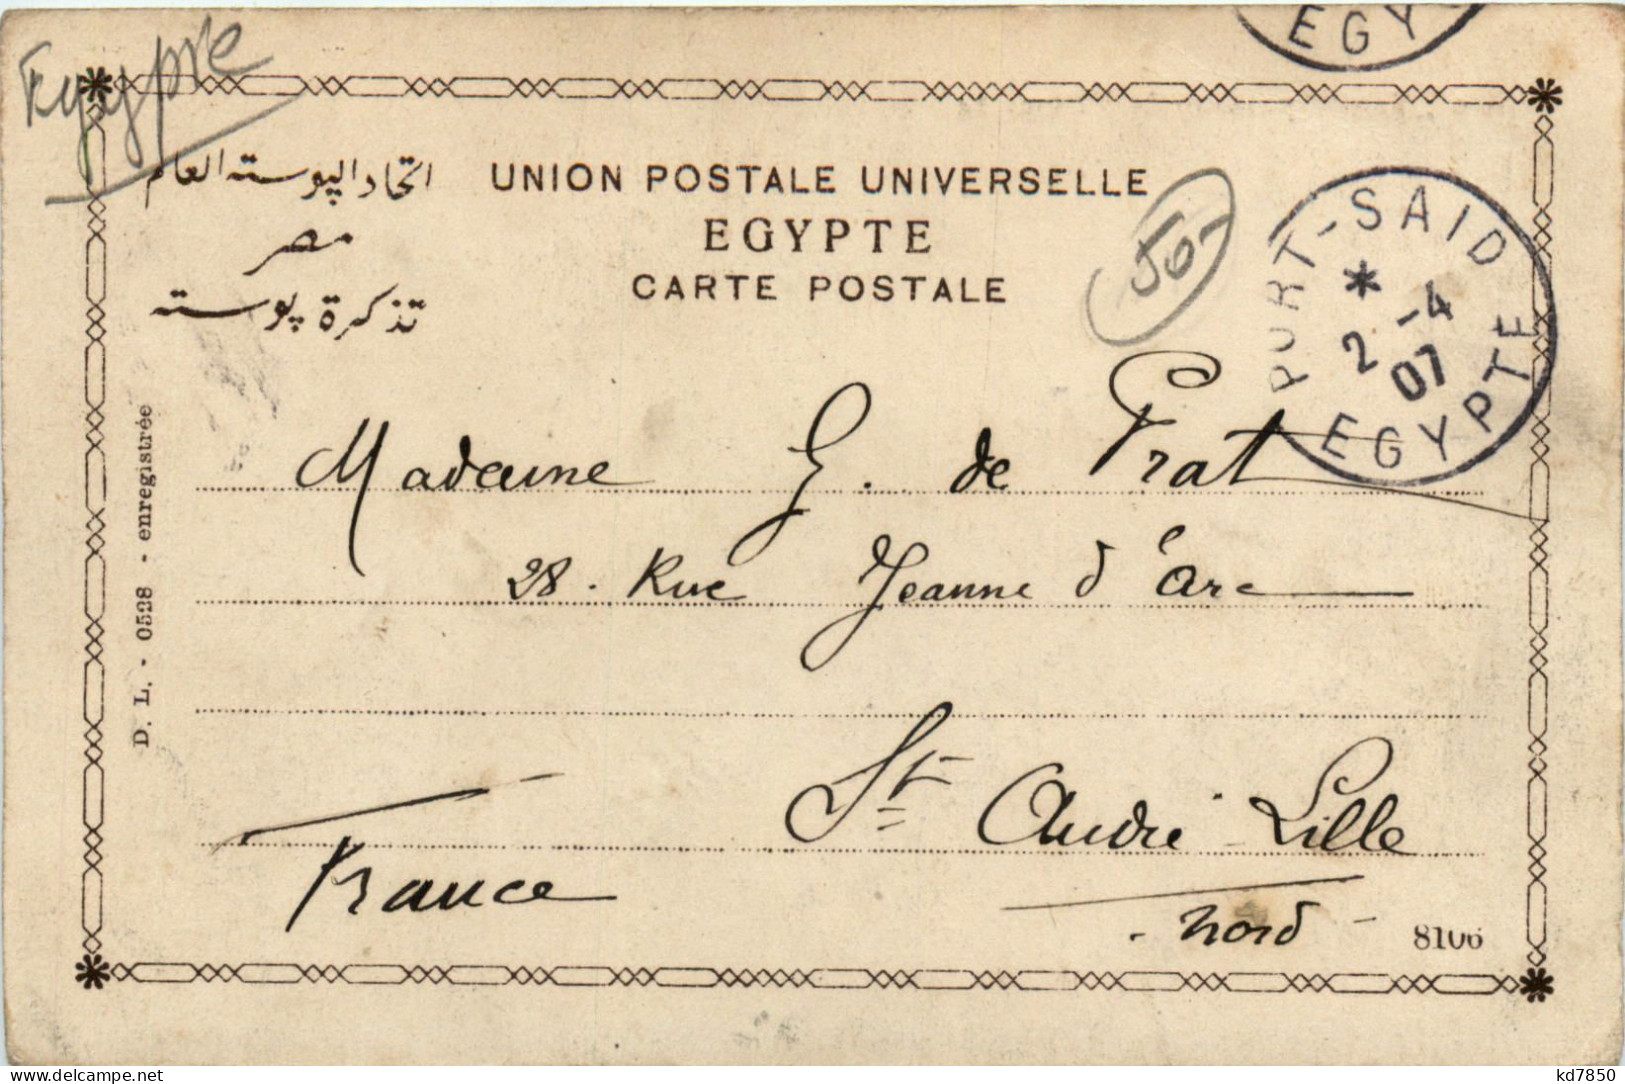 EGY
Egypte
اتحاد البوسته العام
UNION POSTALE UNIVERSELLE
مصر
EGYPTE
تذكرة پوسته
CARTE POSTALE
50-
PORT-SAID
2 -4
07
EGYPTE
D. L. - 0528 - enregistrée
Madame G. de Prat
28. Rue Jeanne d'Arc
St André Lille
France
- Nord -
8106
delcampe.net
kd7850